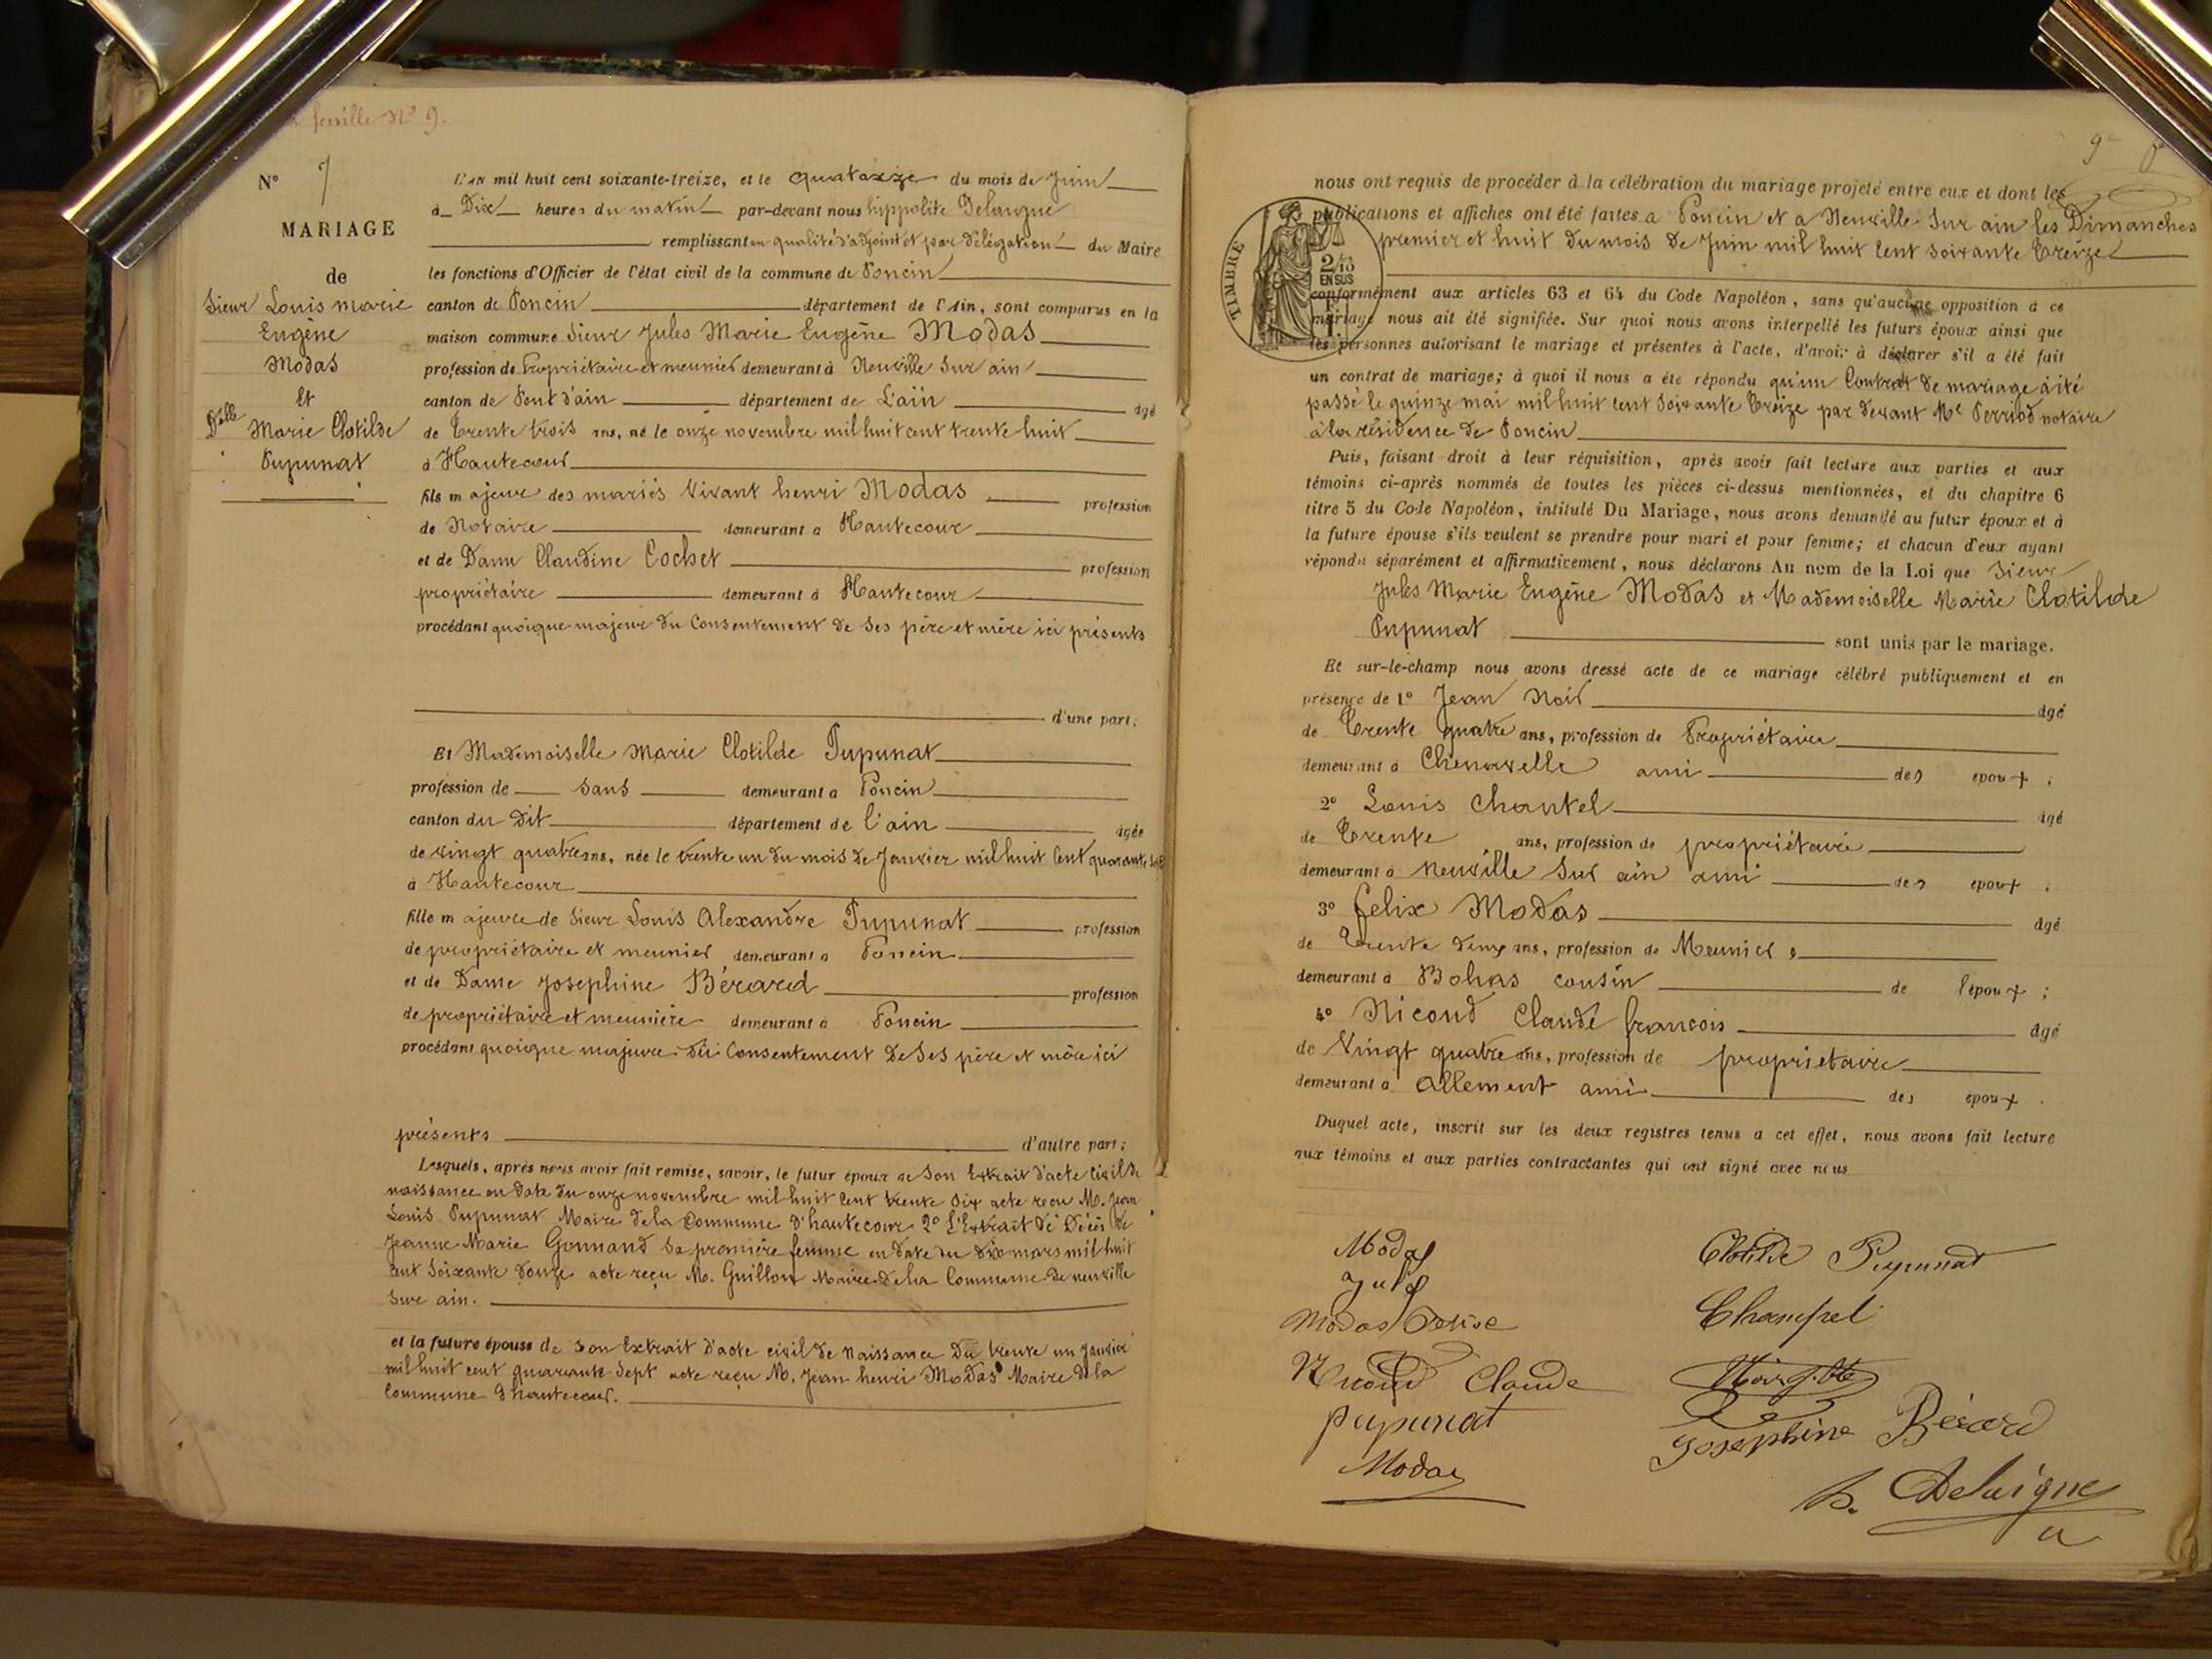 feuille N° 9.
N° 7
MARIAGE
de
Sieur Louis marie
Eugène
Modas
Et
Delle Marie Clotilde
Pupunat
L'AN mil huit cent soixante-treize, et le quatorze du mois de Juin
à Dix heures du matin par-devant nous hippolite Delaigue
remplissant en qualité d'adjoint et par délégation du Maire
les fonctions d'Officier de l'état civil de la commune de Poncin
canton de Poncin département de l'Ain, sont comparus en la
maison commune Sieur Jules Marie Eugène Modas
profession de Propriétaire et meunier demeurant à Neuville Sur ain
canton de Pont d'ain département de L'ain âgé
de Trente trois ans, né le onze novembre mil huit cent trente huit
à Hautecour
fils majeur des mariés Vivant henri Modas profession
de Notaire demeurant à Hautecour
et de Dame Claudine Cochet profession
propriétaire demeurant à Hautecour
procédant quoique majeur du Consentement de Ses père et mère ici présents
d'une part;
Et Mademoiselle Marie Clotilde Pupunat
profession de sans demeurant à Poncin
canton du dit département de l'ain âgée
de vingt quatre ans, née le trente un du mois de Janvier mil huit Cent quarante
à Hautecour
fille majeure de Sieur Louis Alexandre Pupunat profession
de propriétaire et meunier demeurant à Poncin
et de Dame Josephine Bérard profession
de propriétaire et meunière demeurant à Poncin
procédant quoique majeure du Consentement de Ses père et mère ici
présents d'autre part;
Lesquels, après nous avoir fait remise, savoir, le futur époux de Son Extrait d'acte civil de
naissance en date du onze novembre mil huit Cent trente Six acte reçu M. Jean
Louis Pupunat Maire de la Commune d'hautecour 2° L'Extrait de Décès de
Jeanne Marie Gonnand Sa première femme en date du dix mars mil huit
Cent Soixante douze acte reçu M. Guillon Maire de la Commune de neuville
Sur ain.
et la future épouse de Son Extrait d'acte civil de Naissance Du trente un Janvier
mil huit cent quarante Sept acte reçu M. Jean henri Modas Maire de la
Commune d'hautecour.
9e
nous ont requis de procéder à la célébration du mariage projeté entre eux et dont les
publications et affiches ont été faites a Poncin et a Neuville Sur ain les Dimanches
premier et huit du mois de Juin mil huit Cent Soixante Treize
TIMBRE
EN SUS
conformément aux articles 63 et 64 du Code Napoléon, sans qu'aucune opposition à ce
mariage nous ait été signifiée. Sur quoi nous avons interpellé les futurs époux ainsi que
les personnes autorisant le mariage et présentes à l'acte, d'avoir à déclarer s'il a été fait
un contrat de mariage; à quoi il nous a été répondu qu'un Contrat de mariage à été
passé le quinze mai mil huit cent Soixante Treize par devant Me Perriod notaire
à la résidence de Poncin
Puis, faisant droit à leur réquisition, après avoir fait lecture aux parties et aux
témoins ci-après nommés de toutes les pièces ci-dessus mentionnées, et du chapitre 6
titre 5 du Code Napoléon, intitulé Du Mariage, nous avons demandé au futur époux et à
la future épouse s'ils veulent se prendre pour mari et pour femme; et chacun d'eux ayant
répondu séparément et affirmativement, nous déclarons Au nom de la Loi que Sieur
Jules Marie Eugène Modas et Mademoiselle Marie Clotilde
Pupunat sont unis par le mariage.
Et sur-le-champ nous avons dressé acte de ce mariage célébré publiquement et en
présence de 1° Jean Noir âgé
de Trente quatre ans, profession de Propriétaire
demeurant à Chenavelle ami des époux ;
2° Louis Chantel âgé
de Trente ans, profession de propriétaire
demeurant à Neuville Sur ain ami des époux ;
3° Felix Modas âgé
de Trente deux ans, profession de Meunier
demeurant à Bohas cousin de l'époux ;
4° Nicoud Claude francois âgé
de Vingt quatre ans, profession de propriétaire
demeurant à Allement ami des époux .
Duquel acte, inscrit sur les deux registres tenus à cet effet, nous avons fait lecture
aux témoins et aux parties contractantes qui ont signé avec nous
Modas
Jules
Clotilde Pupunat
Modas Felise
Nicoud Claude
Pupunat
Josephine Bérard
Modas
h. Delaigue